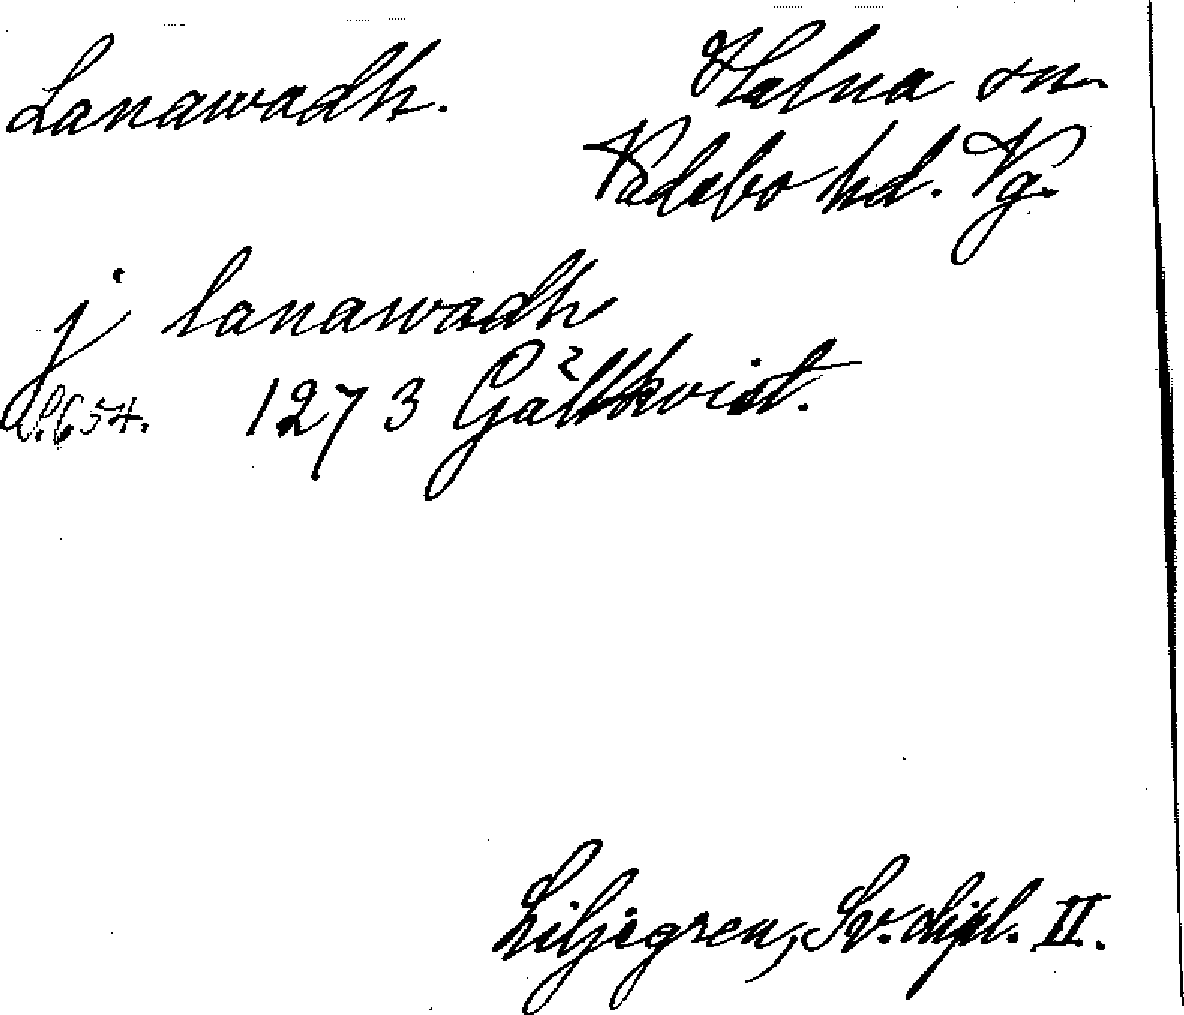 Lanawadh.
Halna sn.
Vadsbo hd. Vg.
j lanawadh
s. 654. 1273 Gälkvist.
Liljegren, Sv. dipl. II.